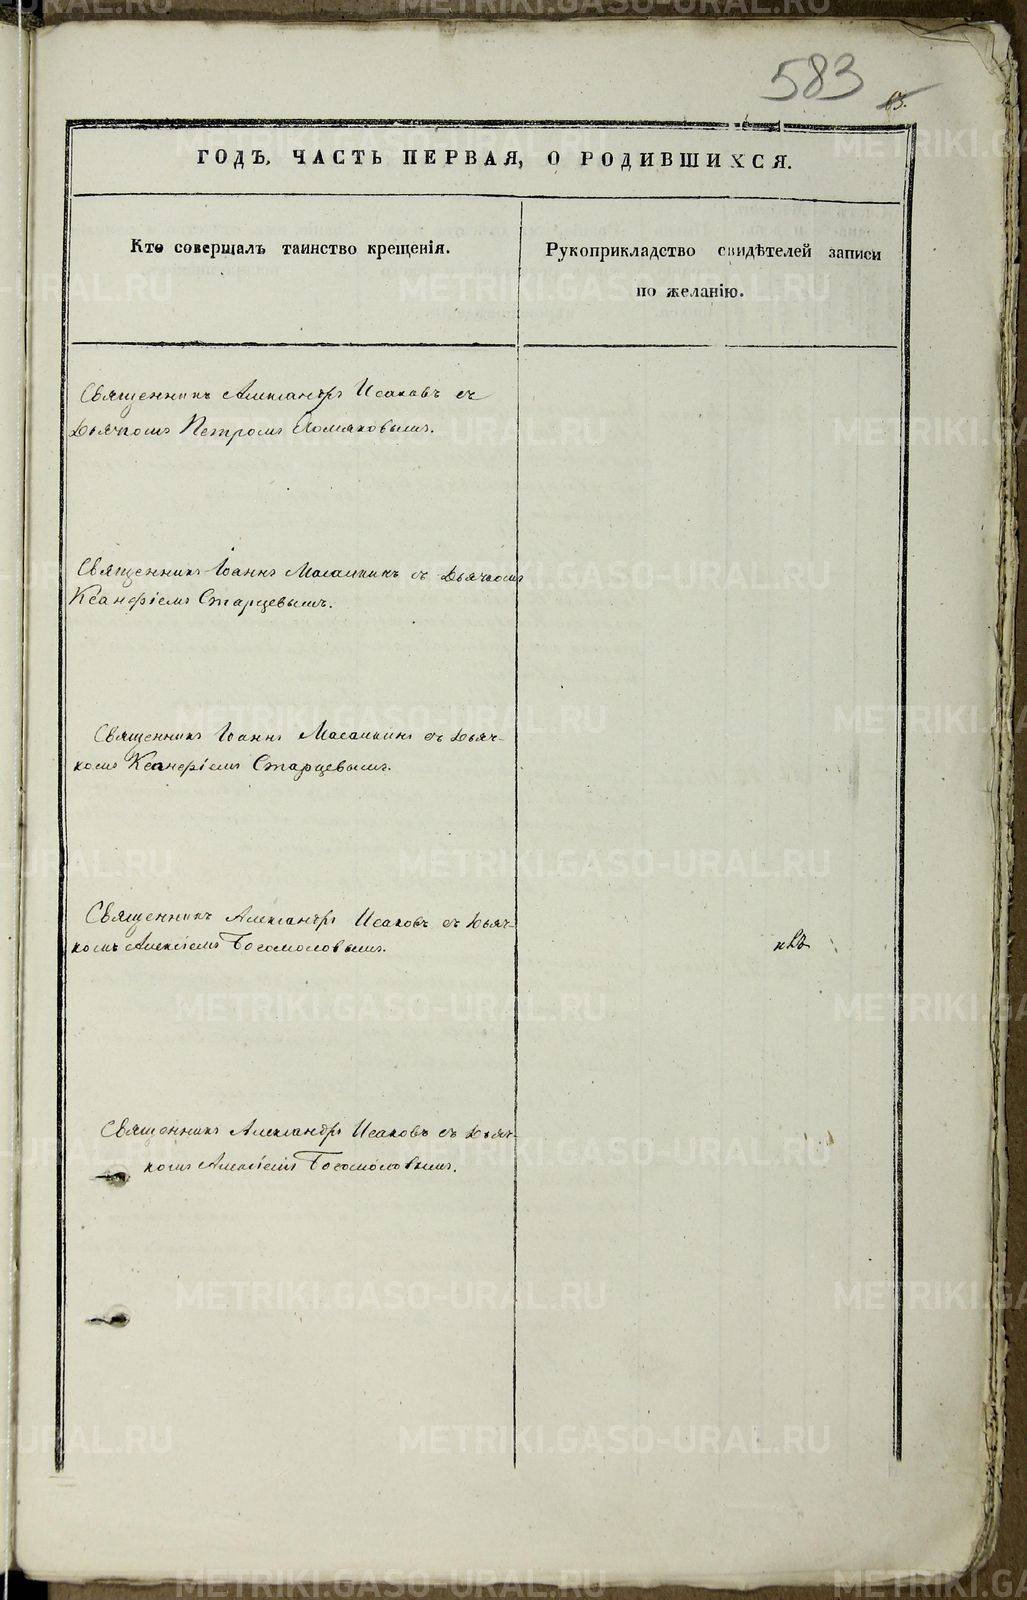 583
63.
ГОДЪ, ЧАСТЬ ПЕРВАЯ, О РОДИВШИХСЯ.
Кто совершалъ таинство крещенія.
Рукоприкладство свидѣтелей записи
по желанію.
Священникъ Александръ Исаковъ съ
Дьячкомъ Петромъ Хомяковымъ.
Священникъ Іоаннъ Масалкинъ съ Дьячкомъ
Ксанфіемъ Старцевымъ.
Священникъ Іоаннъ Масалкинъ съ Дьяч-
комъ Ксанфіемъ Старцевымъ.
Священникъ Александръ Исаковъ съ Дьяч-
комъ Алексіемъ Богомоловымъ.
Священникъ Александръ Исаковъ съ Дьяч-
комъ Алексіемъ Богомоловымъ.
METRIKI.GASO-URAL.RU